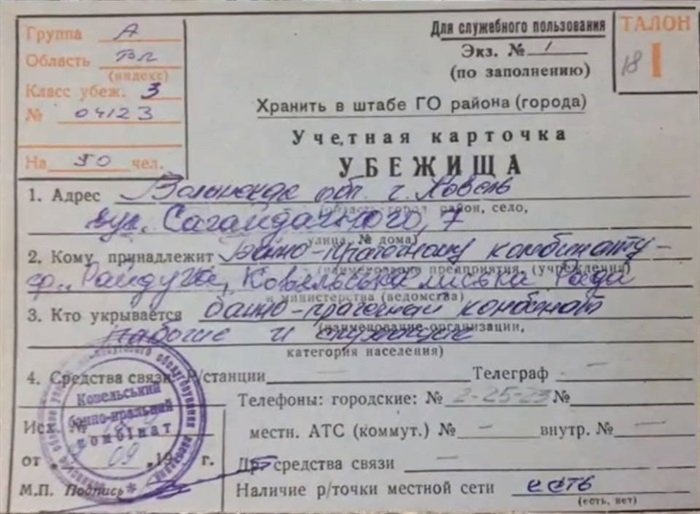 Группа А
Область Вл
(индекс)
Класс убеж. 3
№ 04123
На 50 чел.
Для служебного пользования
Экз. № 1
(по заполнению)
ТАЛОН
18 I
Хранить в штабе ГО района (города)
Учетная карточка
УБЕЖИЩА
1. Адрес Волынская обл. г. Ковель
(область город район, село,
вул. Сагайдачного, 7
улица, № дома)
2. Кому принадлежит Банно-прачечному комбинату-
(наименование предприятия, (учреждения)
ф. "Райдуга, Ковельська міська Рада
и министерства (ведомства)
3. Кто укрывается банно-прачечный комбинат
(наименование организации,
рабочие и служащие
категория населения)
4. Средства связи: Р/станции — Телеграф —
Телефоны: городские: № 2-25-23
Ковельський
банно-пральний
комбінат
Исх. №
местн. АТС (коммут.) № — внутр. № —
от 09 19 г.
Др. средства связи —
М.П. Подпись
Наличие р/точки местной сети есть
(есть, нет)